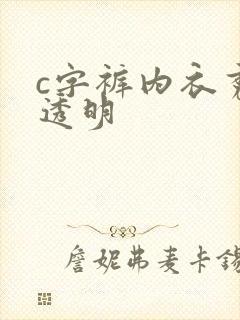 c字裤内衣
透明
詹妮弗麦卡锡